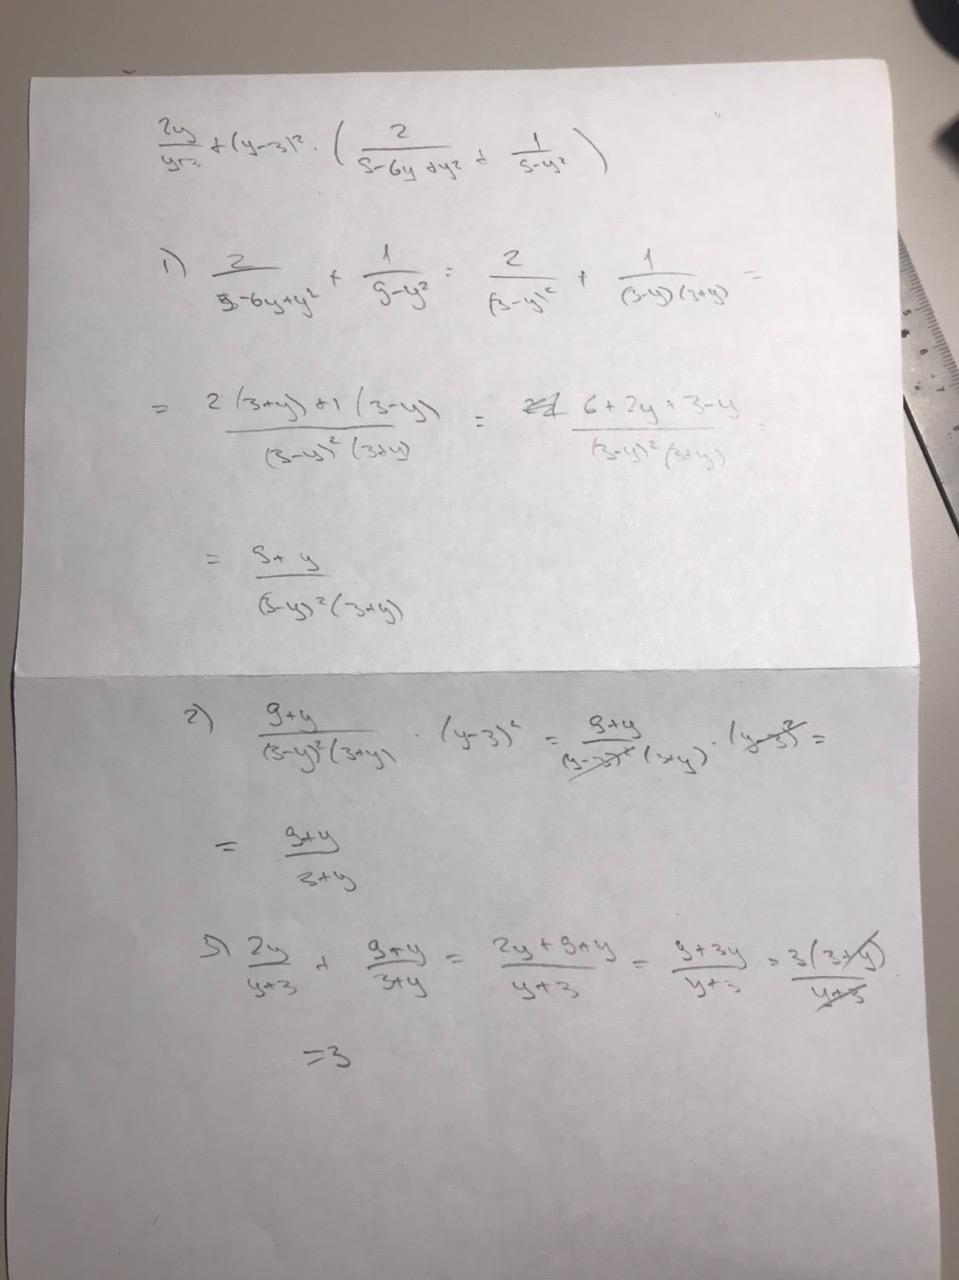 2y/(y+3) + (y-3)² · ( 2/(9-6y+y²) + 1/(9-y²) )
1) 2/(9-6y+y²) + 1/(9-y²) = 2/(3-y)² + 1/((3-y)(3+y)) =
= (2(3+y)+1(3-y))/((3-y)²(3+y)) = (6+2y+3-y)/((3-y)²(3+y)) =
= (9+y)/((3-y)²(3+y))
2) (9+y)/((3-y)²(3+y)) · (y-3)² = (9+y)/((y-3)²(3+y)) · (y-3)² =
= (9+y)/(3+y)
3) 2y/(y+3) + (9+y)/(3+y) = (2y+9+y)/(y+3) = (9+3y)/(y+3) = 3(3+y)/(y+3)
=3